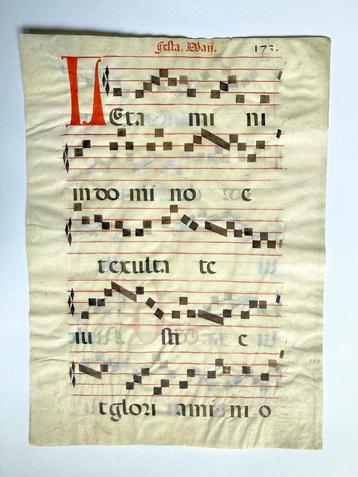 festa. Maij. 173.
Leta mi ni
in do mi no e
t exulta te
iu sti e
t glori ami ni o